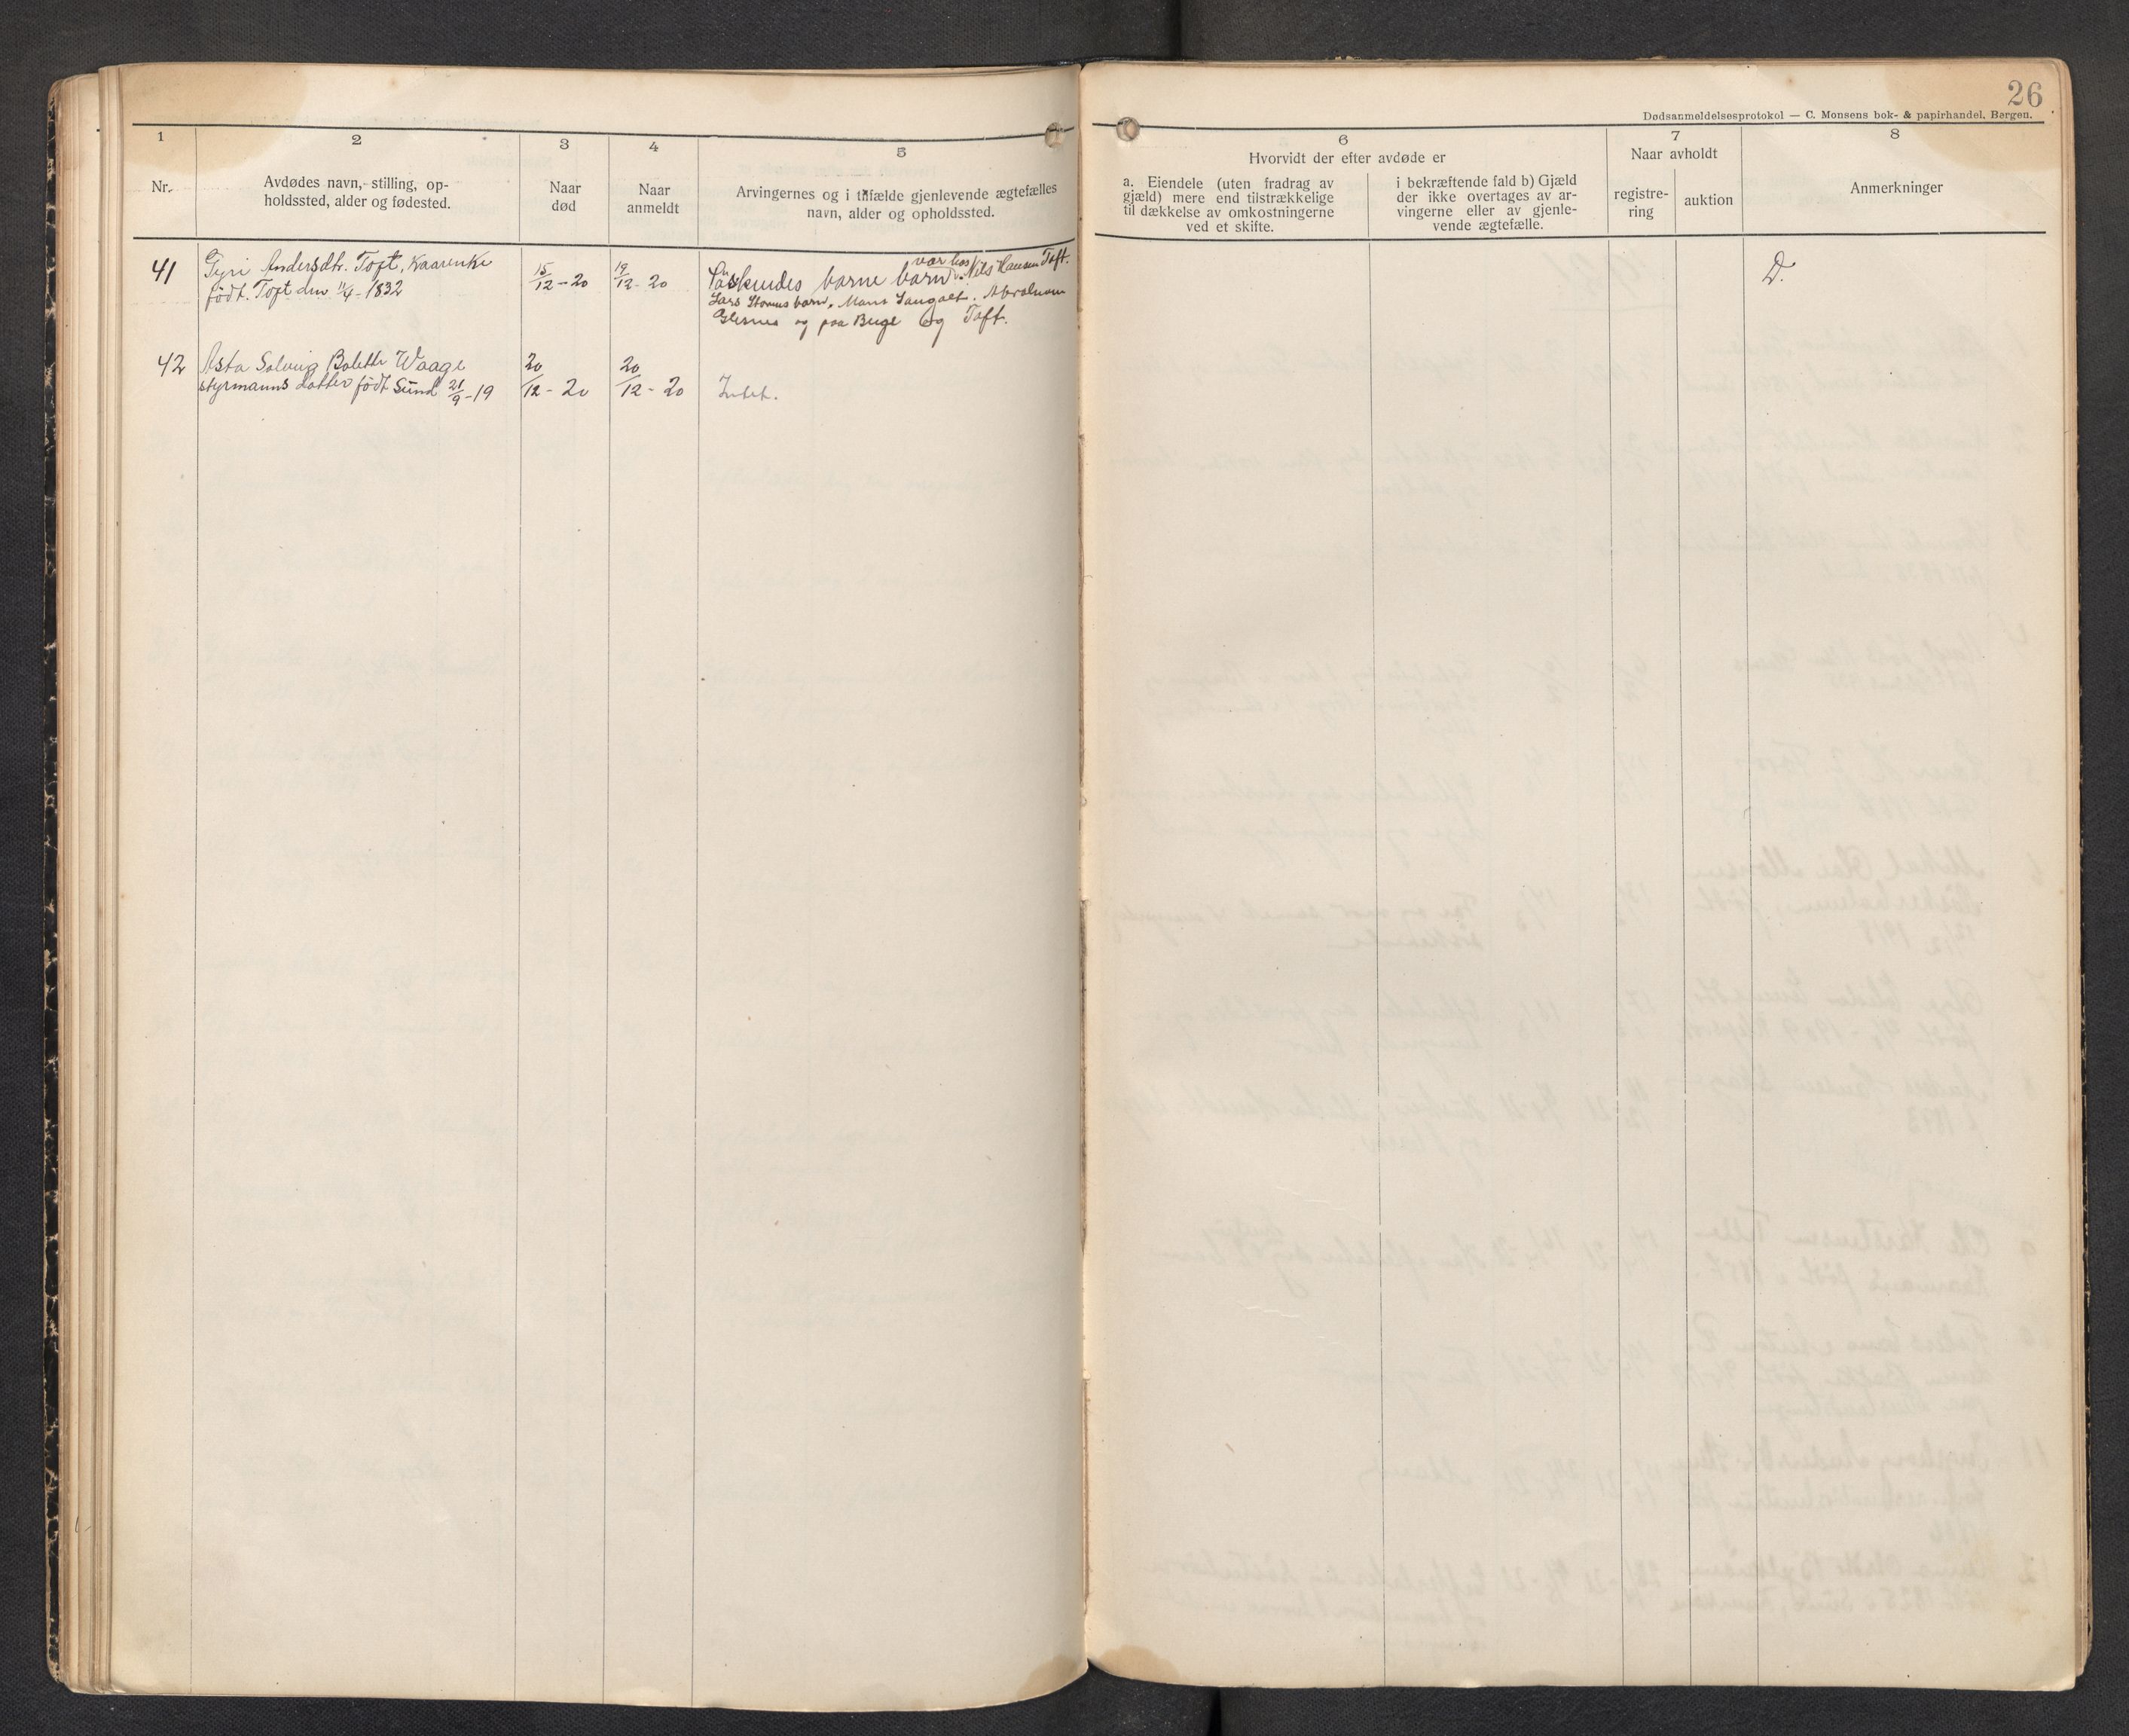 26
Dødsanmeldelsesprotokol — C. Monsens bok- & papirhandel, Bergen.
1
2
3
4
5
6
7
8
Nr.
Avdødes navn, stilling, op-
holdssted, alder og fødested.
Naar
død
Naar
anmeldt
Arvingernes og i tilfælde gjenlevende ægtefælles
navn, alder og opholdssted.
Hvorvidt der efter avdøde er
a. Eiendele (uten fradrag av
gjæld) mere end tilstrækkelige
til dækkelse av omkostningerne
ved et skifte.
i bekræftende fald b) Gjæld
der ikke overtages av ar-
vingerne eller av gjenle-
vende ægtefælle.
Naar avholdt
registre-
ring
auktion
Anmerkninger
41
Gyri Andersdtr. Toft, Kaarenke
født. Toft den 11/4-1832
15/12-20
19/12-20
var hos Nils Hansen Toft.
Søskendes barne barn
Lars barn, Mons Langøen. Abraham
Glesnes og paa Berge og Toft.
D.
42
Asta Solveig Bolette Waage
styrmanns datter født Sund 21/9-19
20/12-20
20/12-20
Intet.